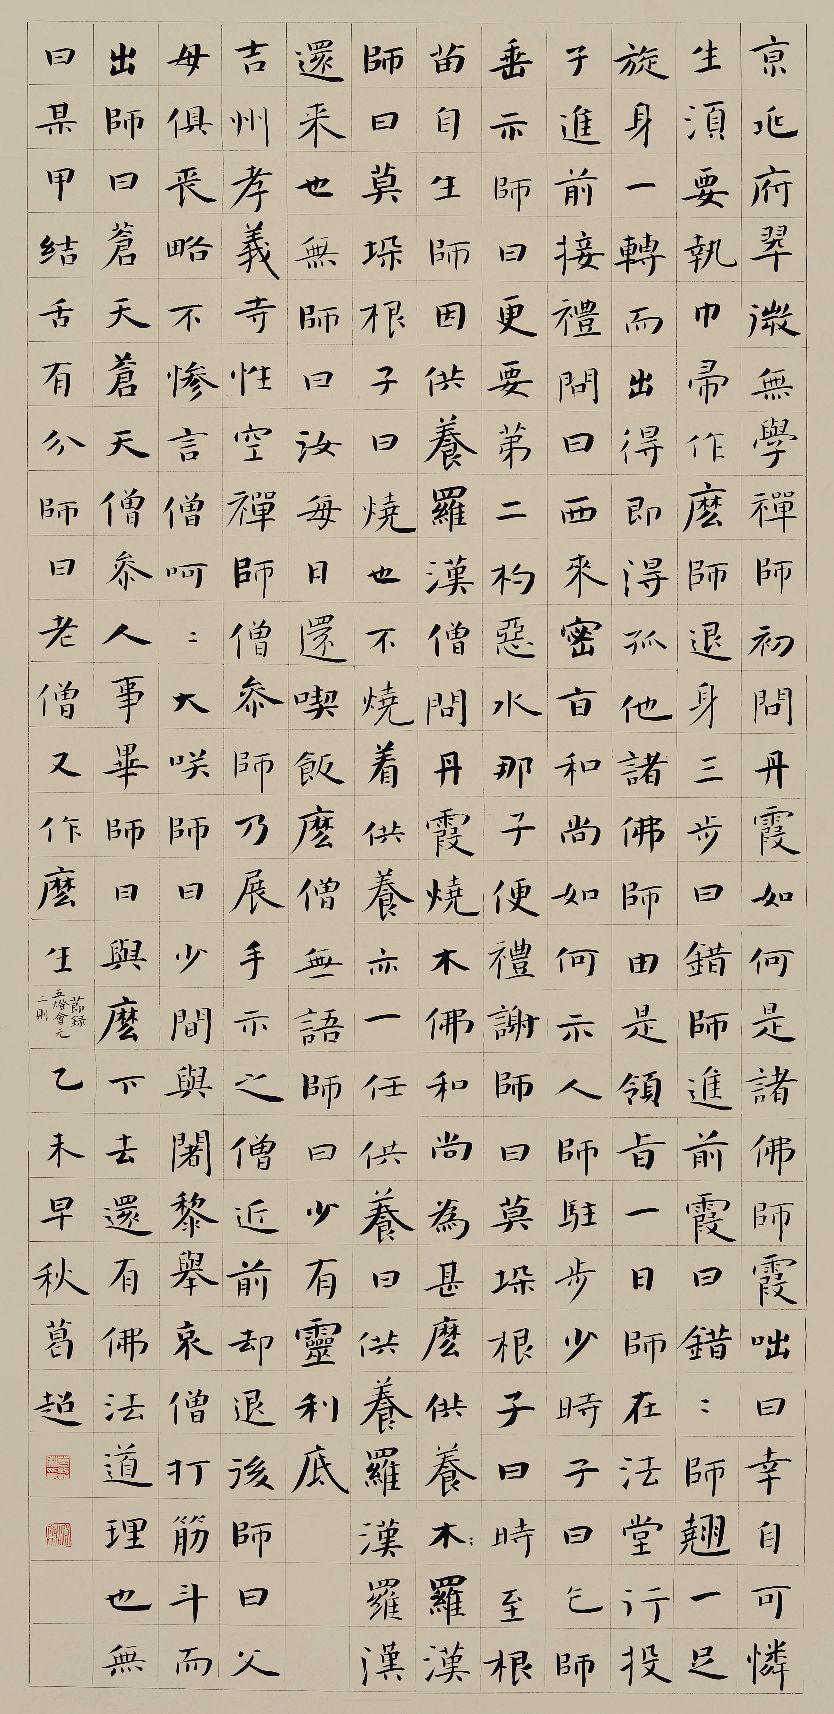 京兆府翠微無學禪師初問丹霞如何是諸佛師霞咄曰幸自可憐
生須要執巾帚作麽師退身三步曰錯師進前霞曰錯:師翹一足
旋身一轉而出得即得孤他諸佛師由是領旨一日師在法堂行投
子進前接禮問曰西來密旨和尚如何示人師駐步少時子曰乞師
垂示師曰更要第二杓惡水那子便禮謝師曰莫垛根子曰時至根
苗自生師因供養羅漢僧問丹霞燒木佛和尚為甚麽供養木:羅漢
師曰莫垛根子曰燒也不燒着供養亦一任供養曰供養羅漢羅漢
還来也無師曰汝每日還喫飯麽僧無語師曰少有靈利底
吉州孝義寺性空禪師僧叅師乃展手示之僧近前却退後師曰父
母俱喪略不慘言僧呵:大咲師曰少間與闍黎舉哀僧打筋斗而
出師曰蒼天蒼天僧叅人事畢師曰與麽下去還有佛法道理也無
曰某甲結舌有分師曰老僧又作麽生
節録
五燈會元
二則
乙未早秋葛超